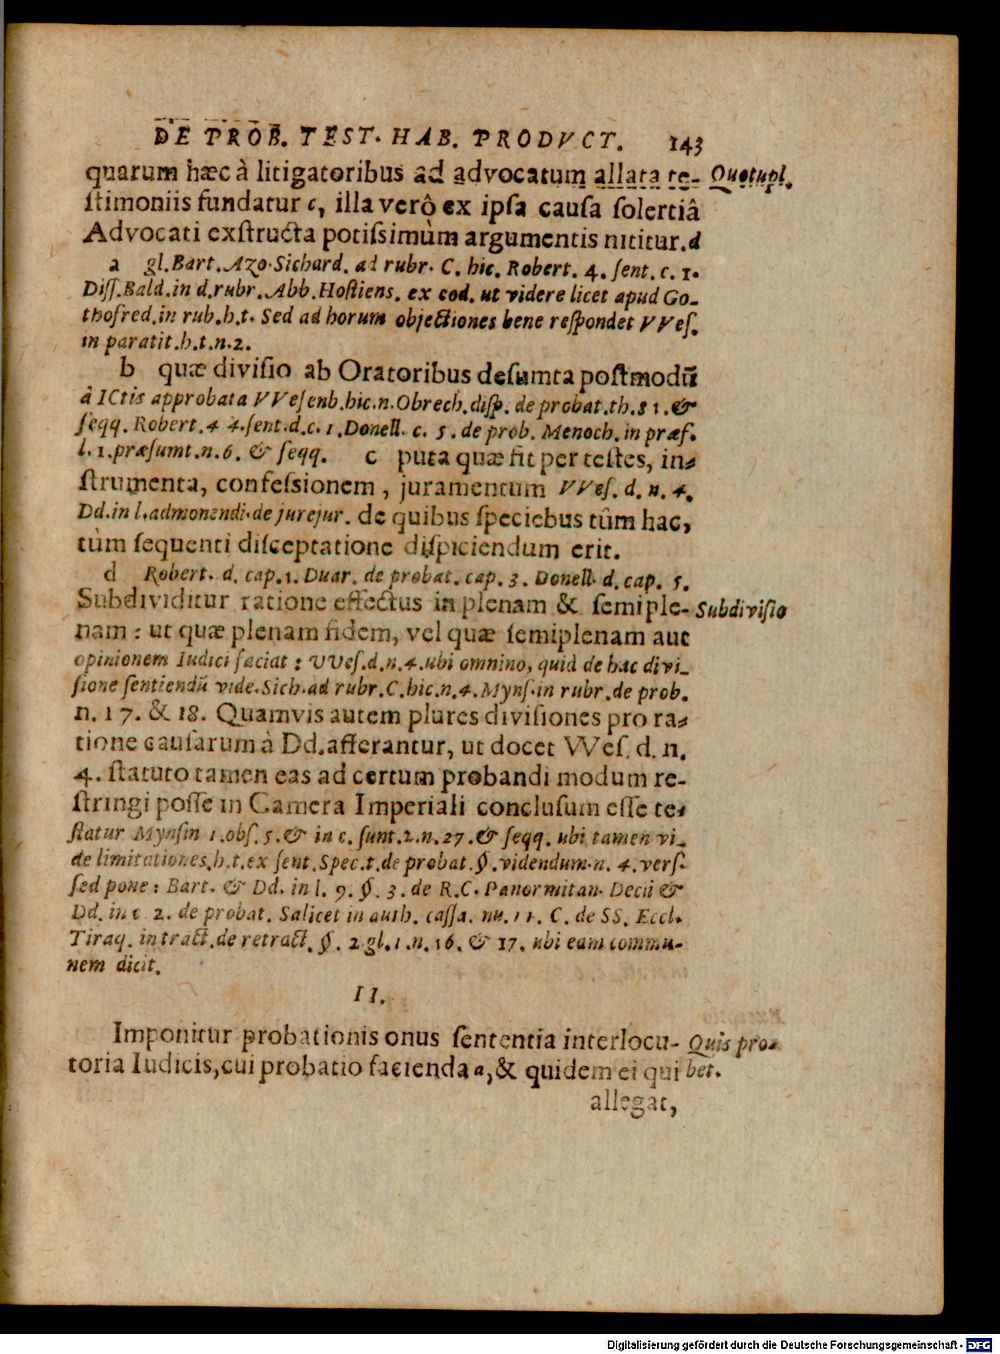 DE PROB. TEST. HAB. PRODVCT. 143
quarum hæc à litigatoribus ad advocatum allata te- Quotupl.
ſtimoniis fundatur c, illa verò ex ipſa cauſa ſolertiâ
Advocati exſtructa potiſsimùm argumentis nititur. d
a gl. Bart. Azo. Sichard. ad rubr. C. hic. Robert. 4. ſent. c. 1.
Diſſ. Bald. in d. rubr. Abb. Hoſtiens. ex eod. ut videre licet apud Go-
thofred. in rub. h. t. Sed ad horum objectiones bene reſpondet VVeſ.
in paratit. h. t. n. 2.
b quæ diviſio ab Oratoribus deſumta poſtmodū
â ICtis approbata VVeſenb. hic. n. Obrech. diſp. de probat. th. 81. &
ſeqq. Robert. 4 4. ſent. d. c. 1. Donell. c. 5. de prob. Menoch. in præf.
l. 1. præſumt. n. 6. & ſeqq. c puta quæ fit per teſtes, in-
ſtrumenta, confeſsionem, juramentum VVeſ. d. n. 4.
Dd. in l. admonendi. de jurejur. de quibus ſpeciebus tùm hac,
tùm ſequenti diſceptatione diſpiciendum erit.
d Robert. d. cap. 1. Duar. de probat. cap. 3. Donell. d. cap. 5.
Subdividitur ratione effectus in plenam & ſemiple- Subdiviſio
nam: ut quæ plenam fidem, vel quæ ſemiplenam aut
opinionem Iudici faciat: VVeſ. d. n. 4. ubi omnino, quid de hac divi-
ſione ſentiendū vide. Sich. ad rubr. C. hic. n. 4. Mynſ. in rubr. de prob.
n. 17. & 18. Quamvis autem plures diviſiones pro ra-
tione cauſarum à Dd. afferantur, ut docet VVeſ. d. n.
4. ſtatuto tamen eas ad certum probandi modum re-
ſtringi poſſe in Camera Imperiali concluſum eſſe te-
ſtatur Mynſin 1. obſ. 5. & in c. ſunt. 2. n. 27. & ſeqq. ubi tamen vi-
de limitationes. h. t. ex ſent. Spec. t. de probat. §. videndum. n. 4. verſ.
ſed pone: Bart. & Dd. in l. 9. §. 3. de R. C. Panormitan. Decii &
Dd. in c 2. de probat. Salicet in auth. caſſa. nu. 11. C. de SS. Eccl.
Tiraq. in tract. de retract. §. 2 gl. 1. n. 16. & 17. ubi eam commu-
nem dicit.
II.
Imponitur probationis onus ſententia interlocu- Quis pro-
toria Iudicis, cui probatio facienda a, & quidem ei qui bet.
allegat,
Digitalisierung gefördert durch die Deutsche Forschungsgemeinschaft - DFG